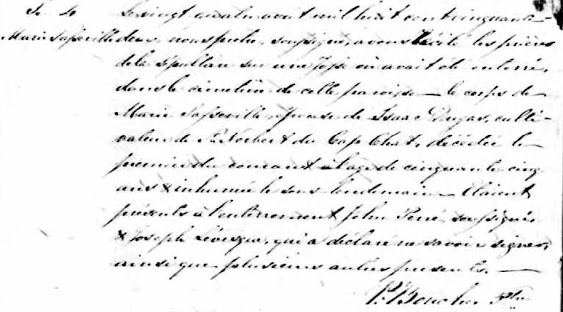 S. 4 Le vingt quatre avril mil huit cent cinquante-
Marie deux, nous prêtre, soussigné, avons récité les prières
de la sépulture sur une fosse où avait été enterré,
dans le cimetière de cette paroisse – le corps de
Marie épouse de Isaac Dugas, culti-
vateur de St Norbert du Cap Chat, décédée le
premier du courant à l'age de cinquante cinq
ans & inhumée le sur lendemain – Etaient
présents à l'enterrement John Perré, soussigné,
& Joseph Lévesque, qui a déclaré ne savoir signer,
ainsi que plusieurs autres presents. —
P. Boucher Ptre